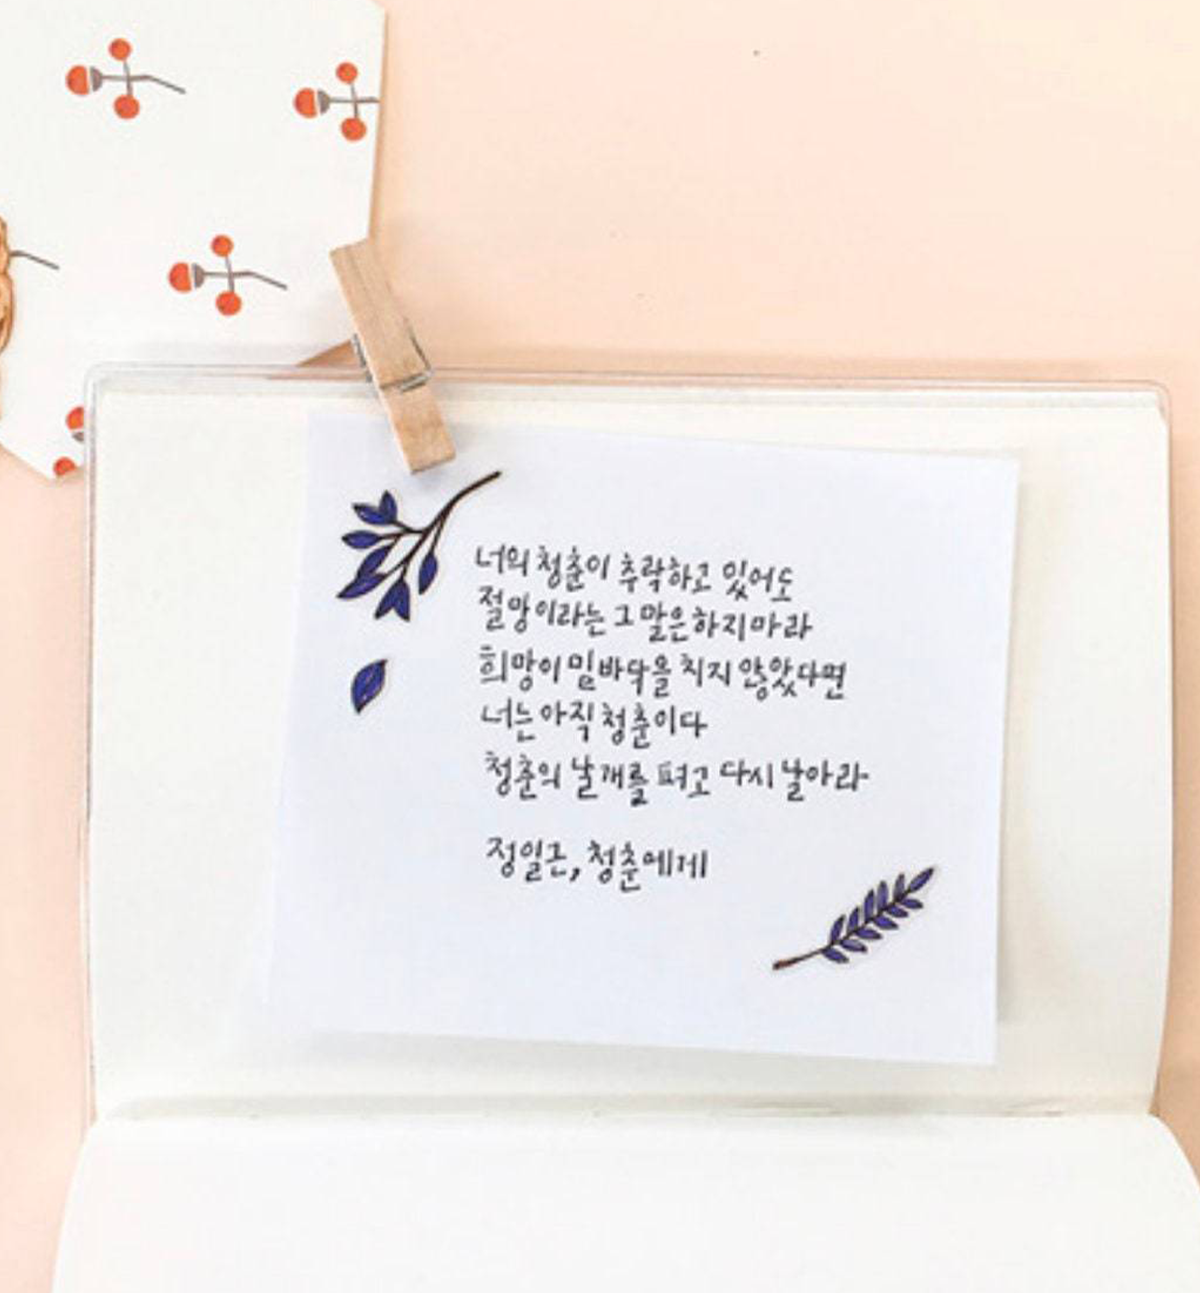 너의 청춘이 추락하고 있어도
절망이라는 그 말은 하지마라
희망이 밑바닥을 치지 않았다면
너는 아직 청춘이다
청춘의 날개를 펴고 다시 날아라
정일근, 청춘에게